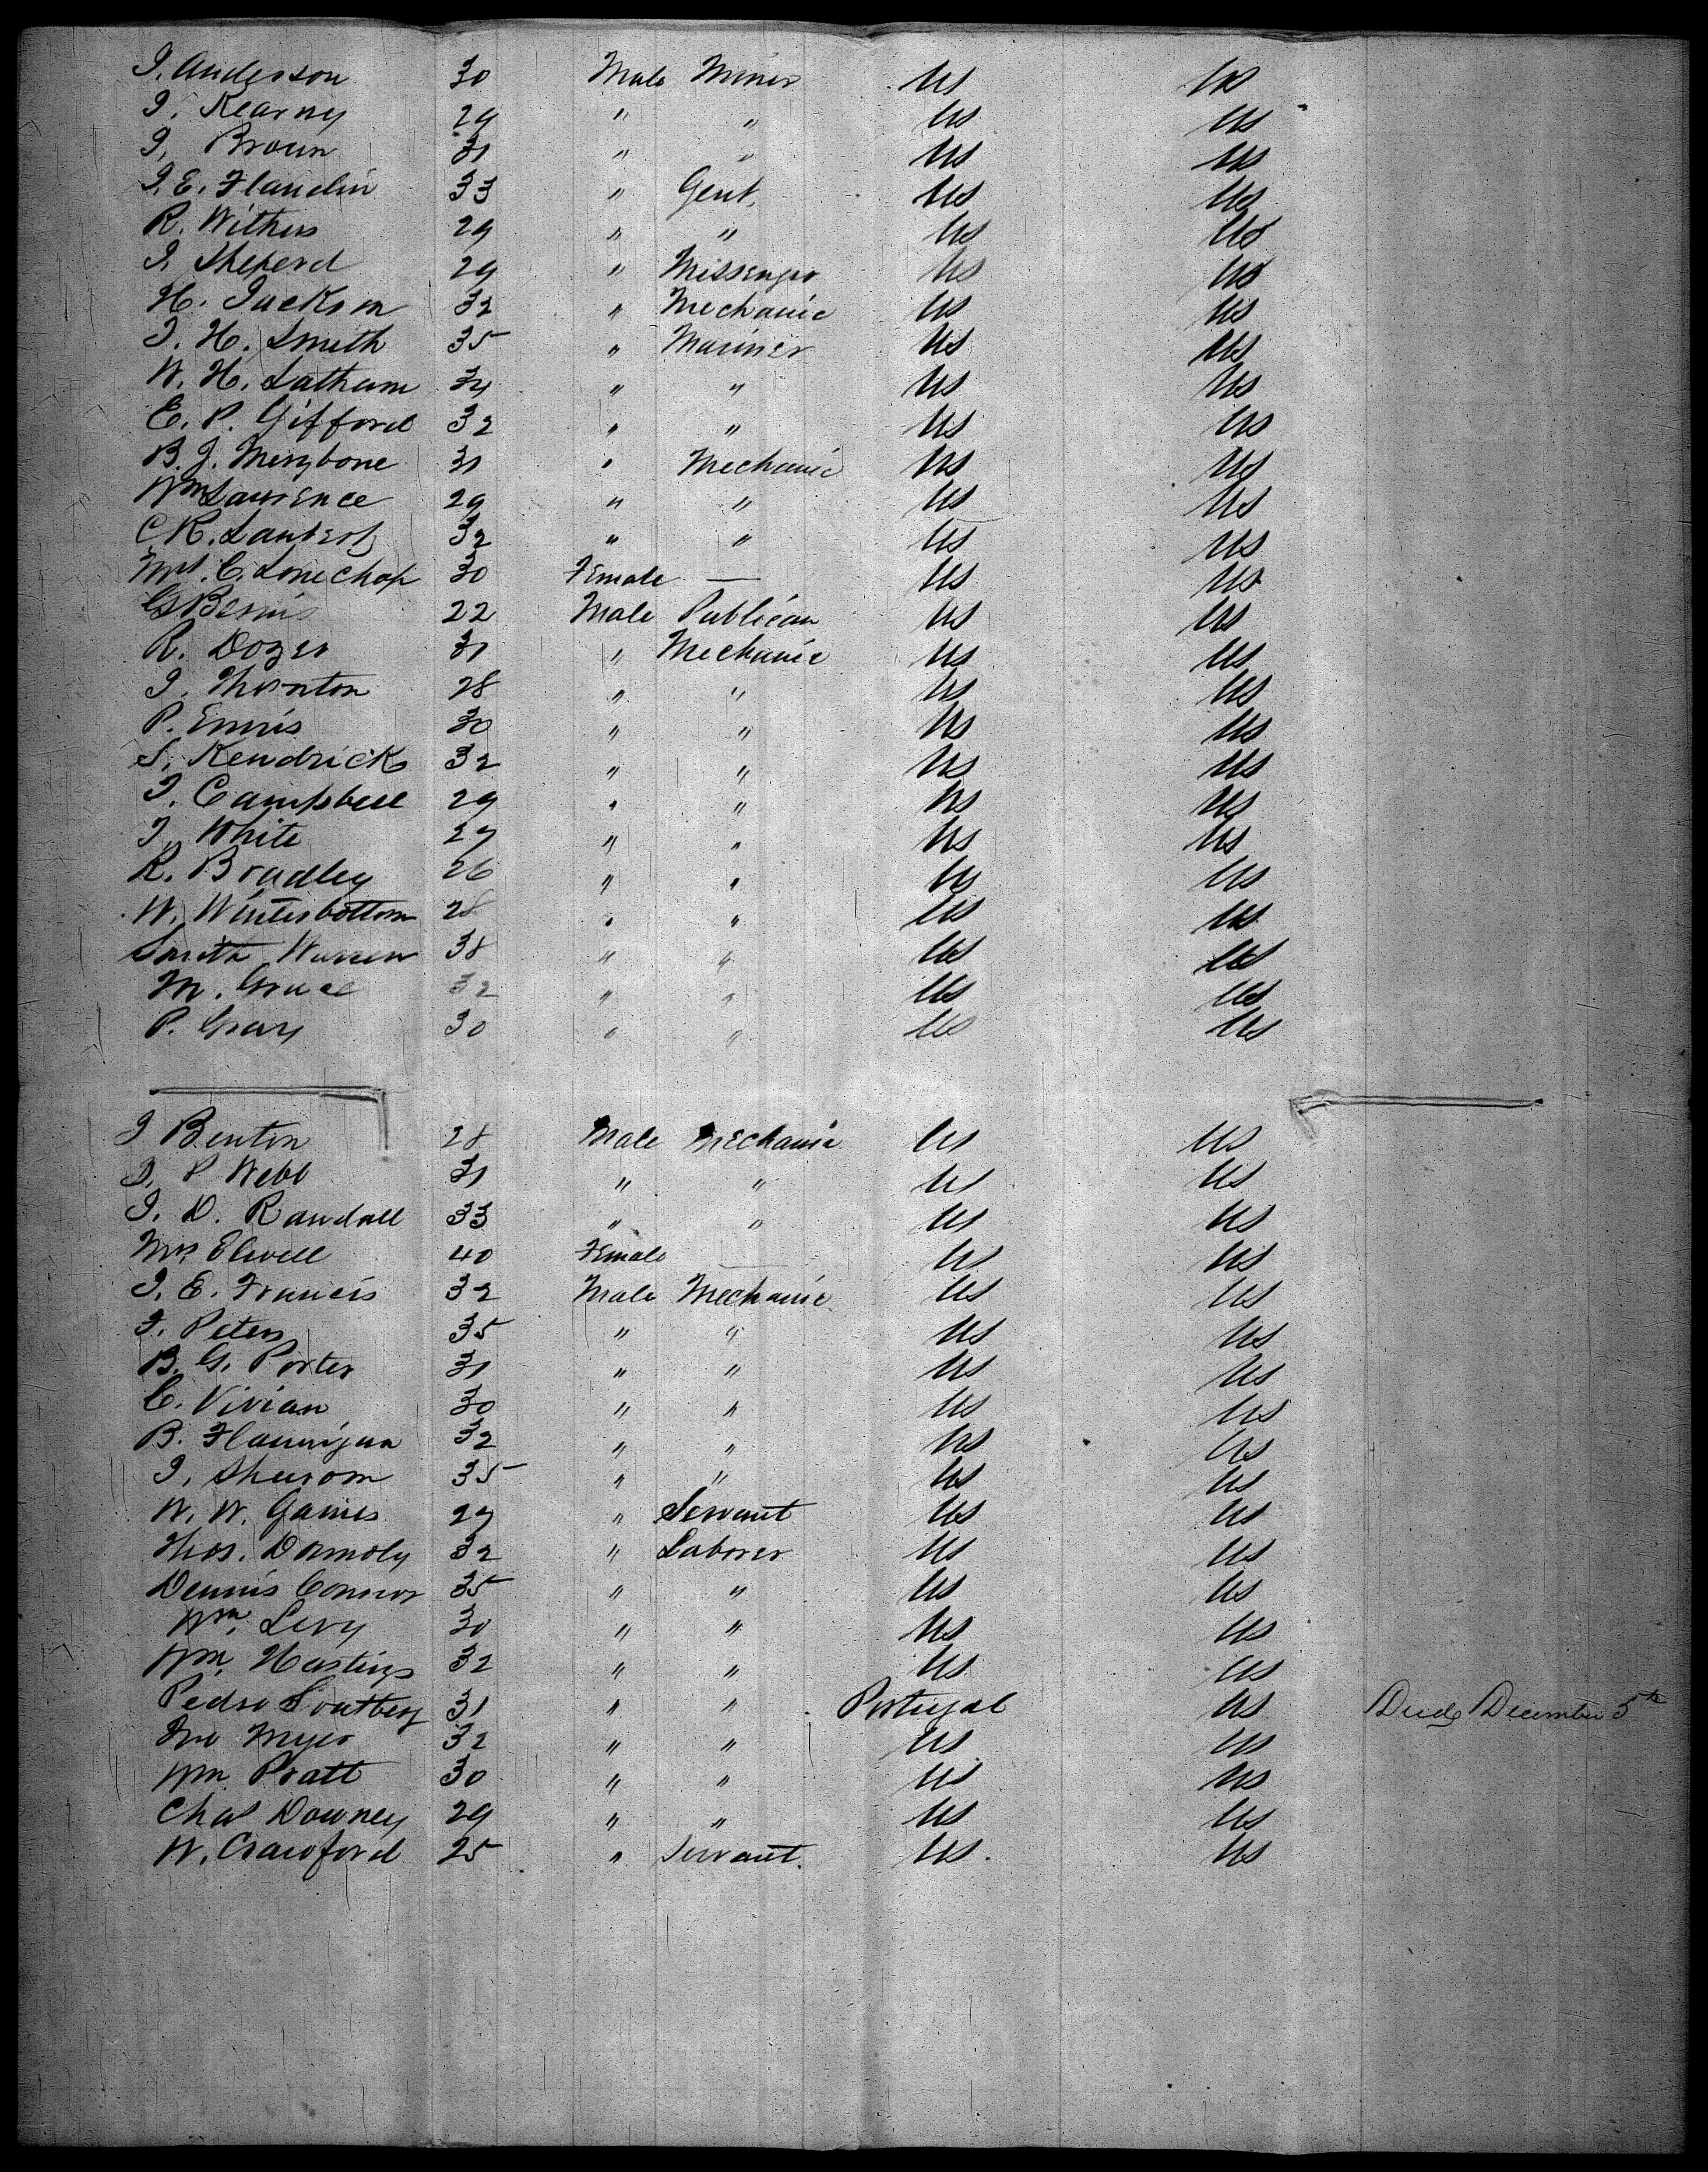 J. Anderson 30 Male Miner US US
J. Kearny 29 " " US US
J. Brown 31 " " US US
J. E. Flandin 33 " Gent. US US
R. Withers 29 " " US US
J. Sheperd 29 " Messenger US US
H. Jackson 32 " Mechanic US US
J. H. Smith 35 " Mariner US US
W. H. Latham 34 " " US US
E. P. Gifford 32 " " US US
B. J. 31 " Mechanic US US
Wm Lawrence 29 " " US US
C. R. 32 " " US US
Mrs. C. 30 Female — US US
G Bemis 22 Male Publican US US
R. Dozer 31 " Mechanic US US
J. Thornton 28 " " US US
P. Ennis 30 " " US US
S. Kendrick 32 " " US US
J. Campbell 29 " " US US
J. White 27 " " US US
R. Bradley 26 " " US US
W. Winterbottom 28 " " US US
Smith Warren 38 " " US US
M. Grace 32 " " US US
P. Gray 30 " " US US
J Benton 28 Male Mechanic US US
J. P Webb 31 " " US US
J. D. Randall 33 " " US US
Mrs Elwell 40 Female — US US
J. E. Francis 32 Male Mechanic US US
J. Peters 35 " " US US
B. G. Porter 31 " " US US
C. Vivian 30 " " US US
B. Flannigan 32 " " US US
J. 35 " " US US
W. W. Gaines 27 " Servant US US
Thos. Donnoly 32 " Laborer US US
Dennis Connor 35 " " US US
Wm. Levy 30 " " US US
Wm. Hastings 32 " " US US
Pedro 31 " " Portugal US Died December 5th
Myer 32 " " US US
Wm Pratt 30 " " US US
Chas Downey 29 " " US US
W. Crawford 25 " Servant. US. US